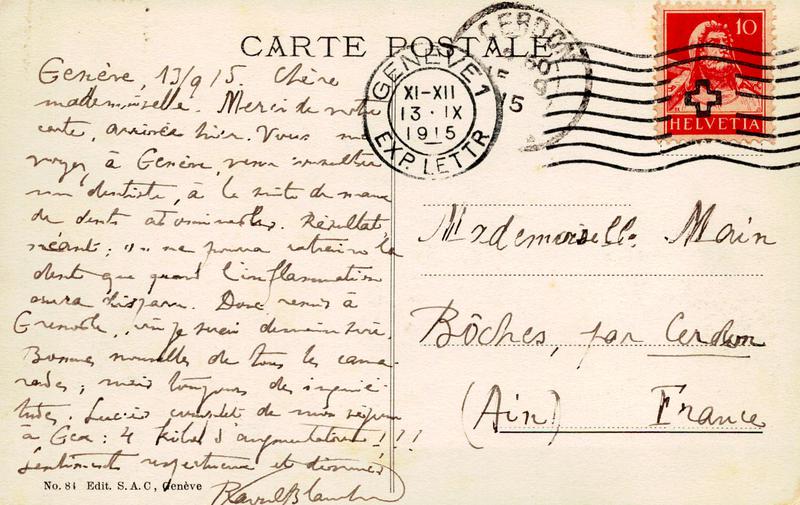 CARTE POSTALE
Genève, 13/9/15. Chère
mademoiselle. Merci de votre
carte, arrivée hier. Vous me
voyez à Genève, venu consulter
un dentiste, à la suite de maux
de dents abominables. Résultat,
néant; on ne pourra extraire la
dent que quand l'inflammation
aura disparu. Donc remis à
Grenoble, où je serai demain soir.
Bonnes nouvelles de tous les cama-
rades; mais toujours des inquié-
tudes. Succès complet de mon séjour
à Gex: 4 kilos d'augmentation!!!
Sentiments respectueux et dévoués
Raoul Blanchard
No. 84 Edit. S. A. C, Genève
GENÈVE 1
XI-XII
13·IX
1915
EXP. LETTR
CERDON
15
10
HELVETIA
Mademoiselle Morin
Bôches, par Cerdon
(Ain) France